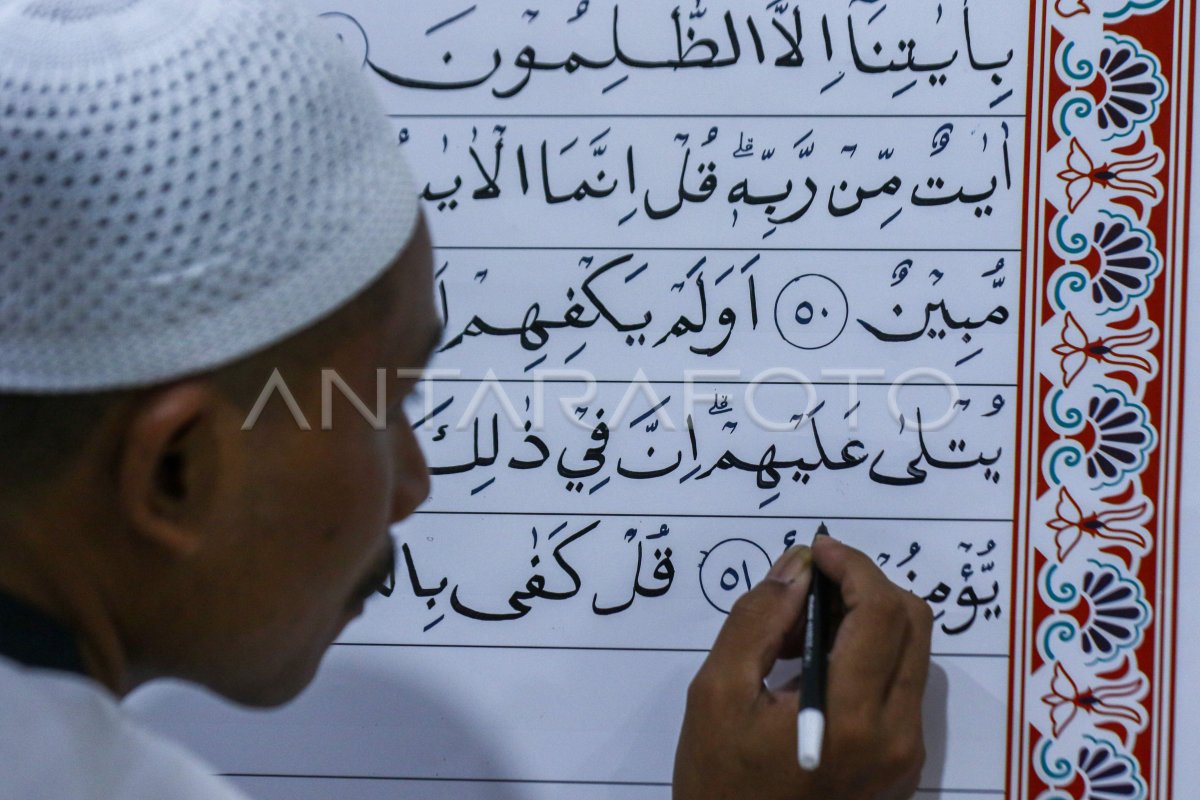 بِاٰيٰتِنَآ اِلَّا الظّٰلِمُوْنَ
اٰيٰتٌ مِّنْ رَّبِّهٖ ۗ قُلْ اِنَّمَا
مُّبِيْنٌ ٥٠ اَوَلَمْ يَكْفِهِمْ
يُتْلٰى عَلَيْهِمْ ۗ اِنَّ فِيْ ذٰلِكَ
ANTARAFOTO
٥١ قُلْ كَفٰى